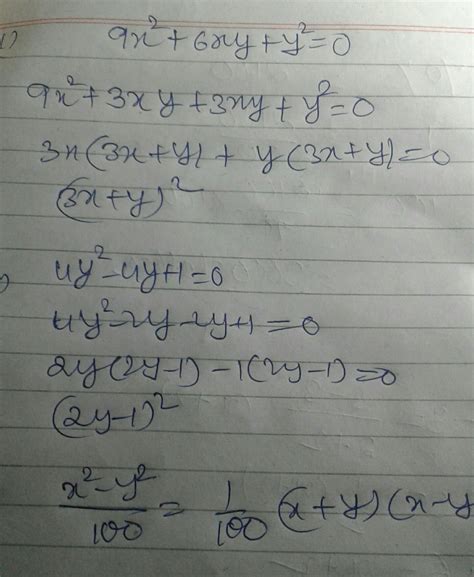 1)
9x²+6xy+y²=0
9x²+3xy+3xy+y²=0
3x(3x+y)+y(3x+y)=0
(3x+y)²
4y²-4y+1=0
4y²-2y-2y+1=0
2y(2y-1)-1(2y-1)=0
(2y-1)²
x²-y²/100 = 1/100 (x+y)(x-y